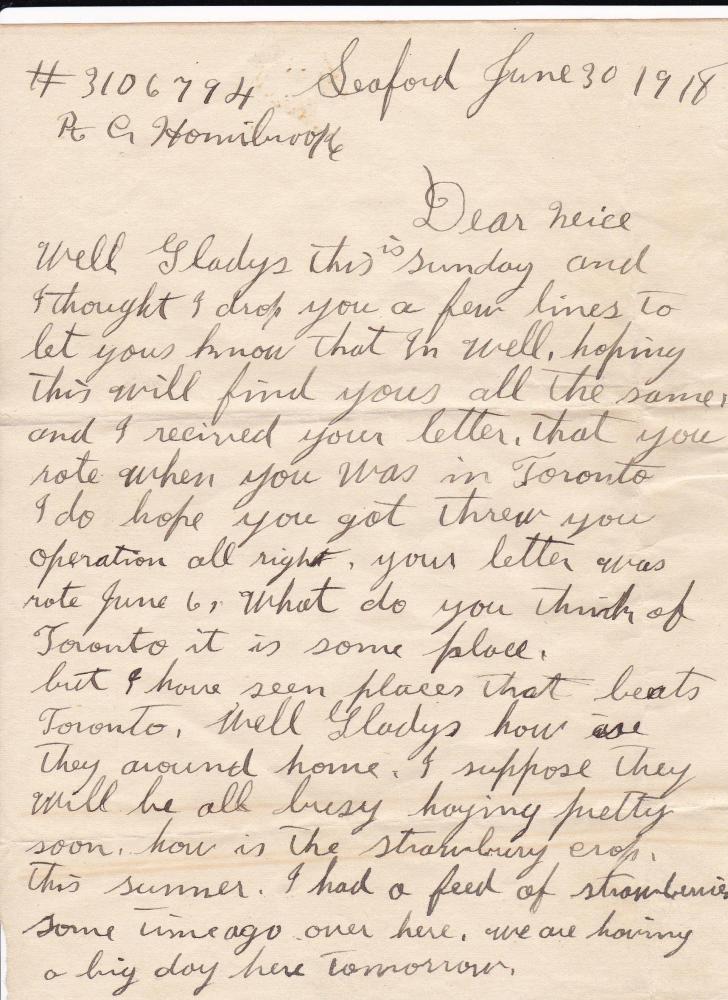 # 3106794 Seaford June 30 1918
Pt G Hornibrook
Dear neice
Well Gladys this is Sunday and
I thought I drop you a few lines to
let yous know that Im well, hoping
this will find yous all the same,
and I recived your letter, that you
rote when you was in Toronto
I do hope you got threw you
operation all right, your letter was
rote June 6, What do you think of
Toronto it is some place.
but I have seen places that beats
Toronto. Well Gladys how are
they around home. I suppose they
will be all busy haying pretty
soon. how is the strawbury crop.
this sunner. I had a feed of strawberries
some time ago over here. we are having
a big day here tomorrow.